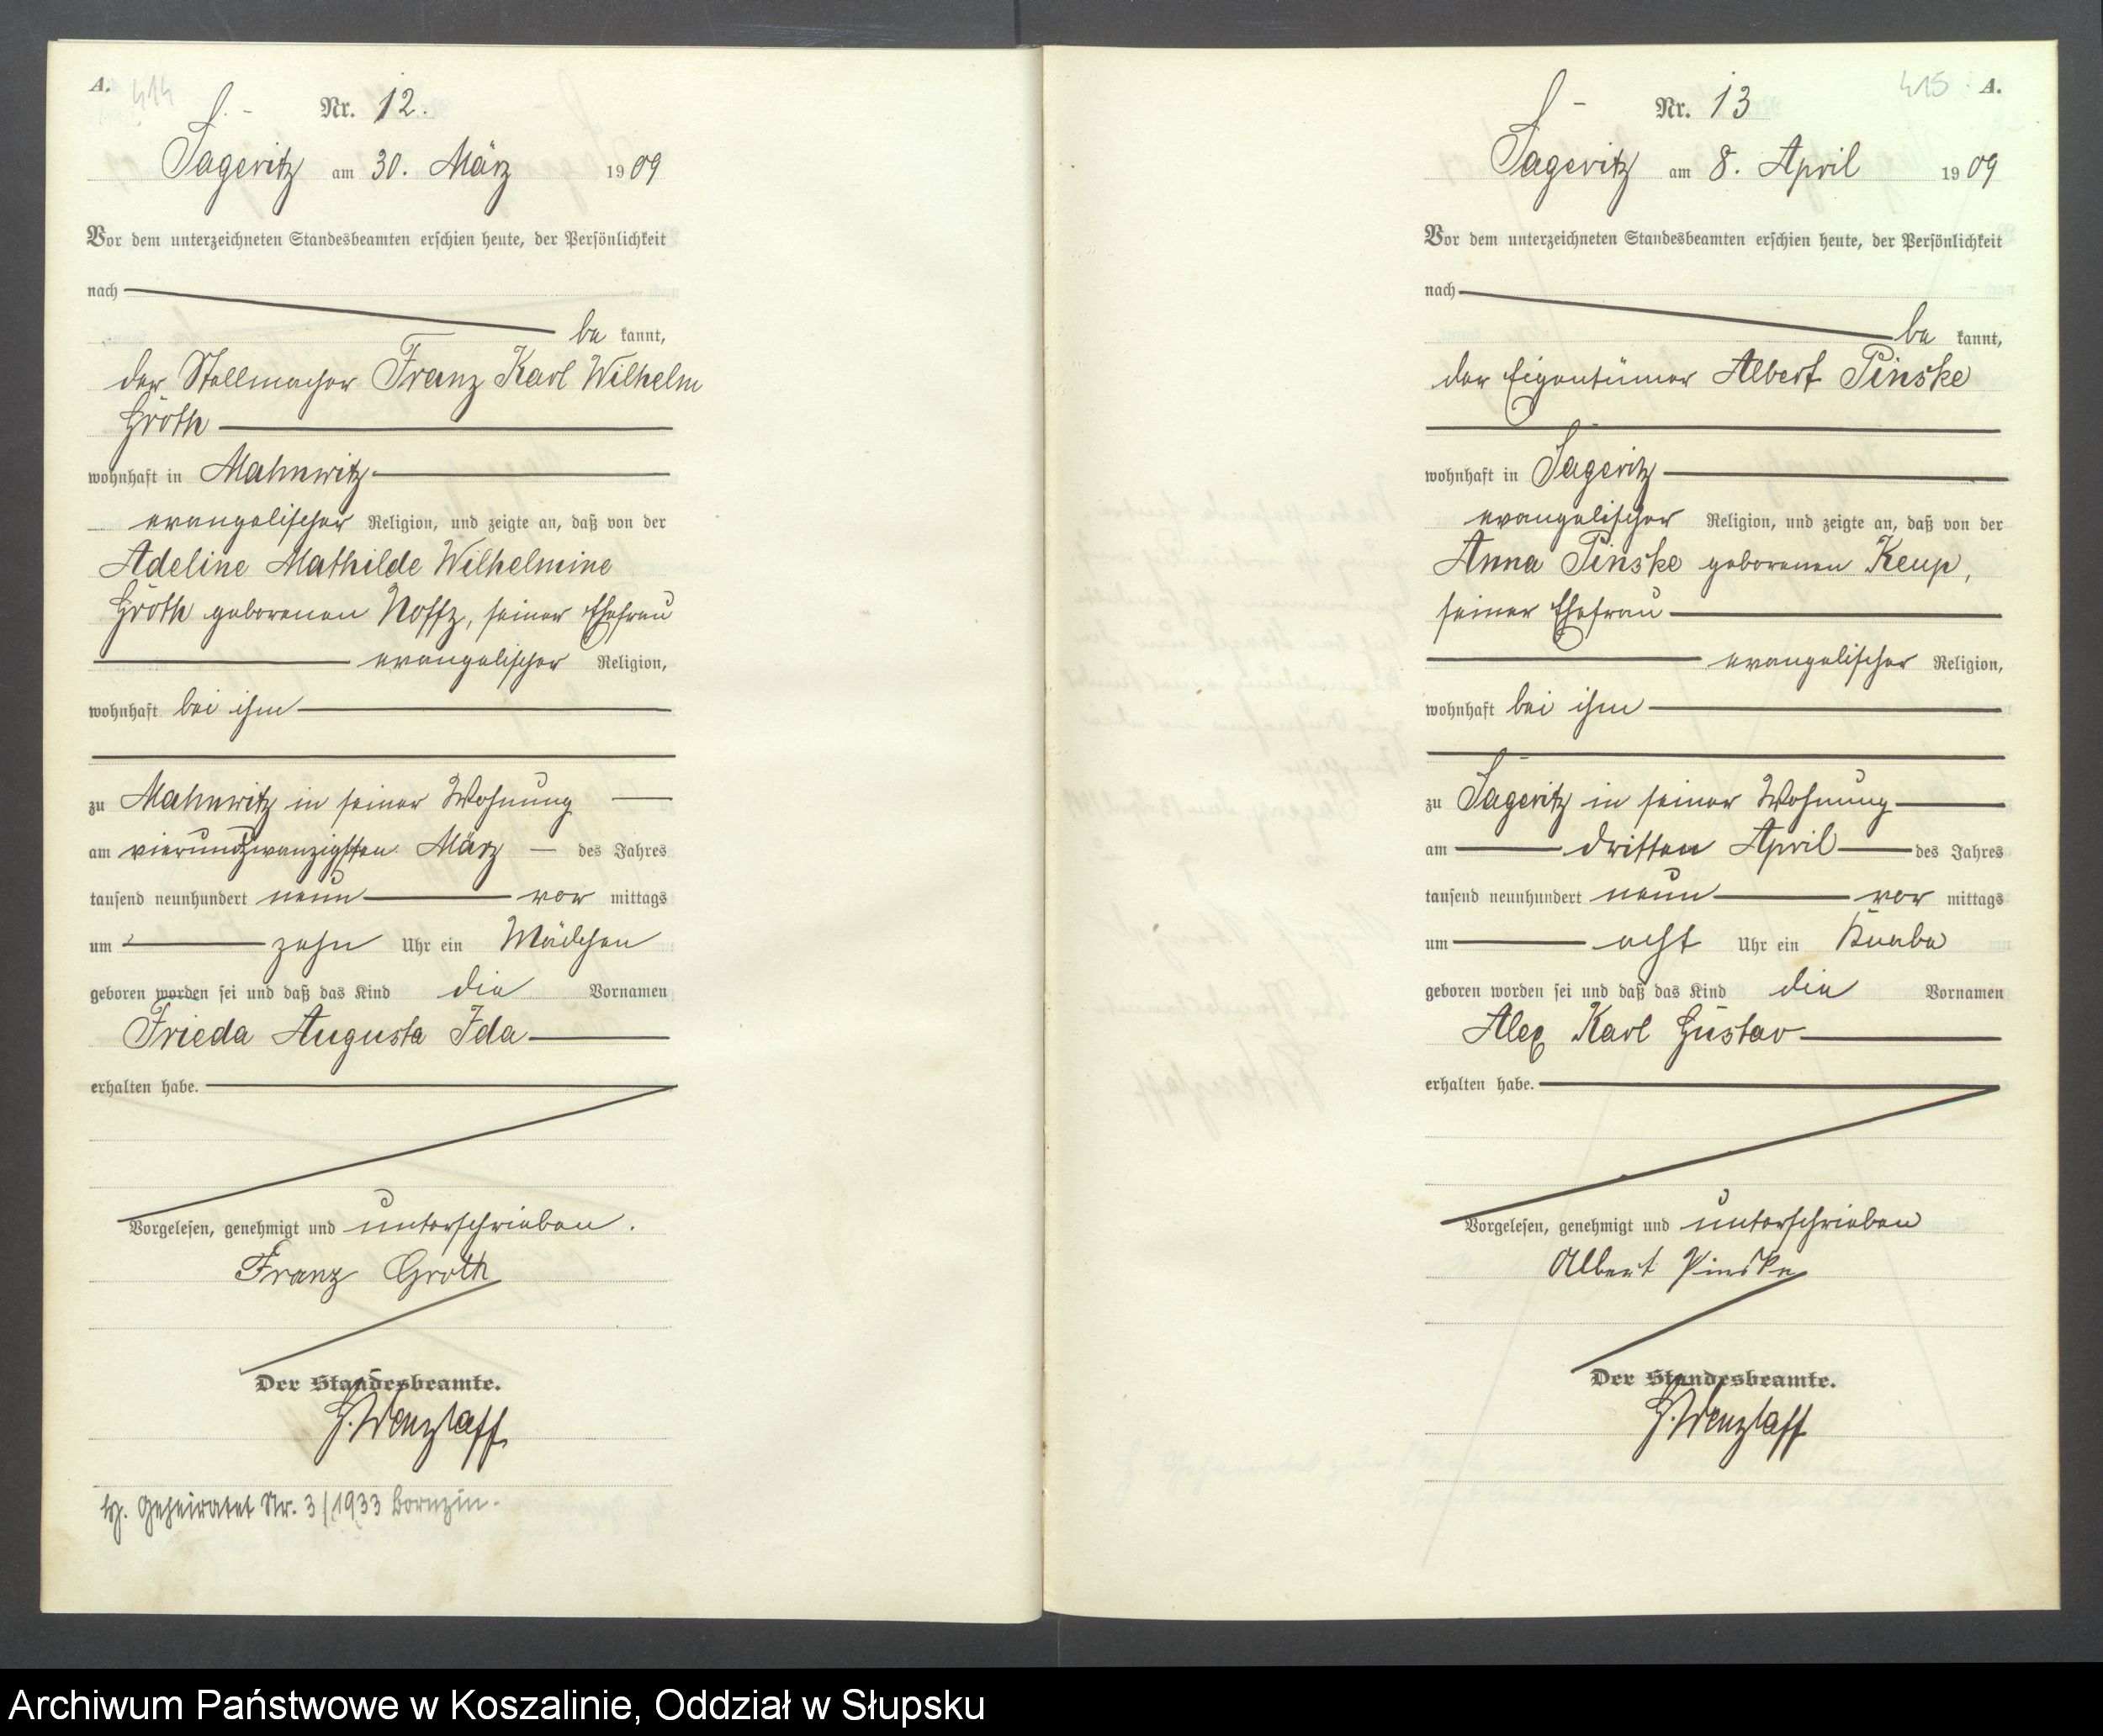 A.
414
Nr. 12.
Sageritz am 30. März 1909
Vor dem unterzeichneten Standesbeamten erschien heute, der Persönlichkeit
nach
be kannt,
der Stellmacher Franz Karl Wilhelm
Groth
wohnhaft in Mahnwitz
evangelischer Religion, und zeigte an, daß von der
Adeline Mathilde Wilhelmine
Groth geborenen Noffz, seiner Ehefrau
evangelischer Religion,
wohnhaft bei ihm
zu Mahnwitz in seiner Wohnung
am vierundzwanzigsten März des Jahres
tausend neunhundert neun vor mittags
um zehn Uhr ein Mädchen
geboren worden sei und daß das Kind die Vornamen
Frieda Augusta Ida
erhalten habe.
Vorgelesen, genehmigt und unterschrieben.
Franz Groth
Der Standesbeamte.
Wenzlaff
Geheiratet Nr. 3/1933 Bornzin.
415 A.
Nr. 13
Sageritz am 8. April 1909
Vor dem unterzeichneten Standesbeamten erschien heute, der Persönlichkeit
nach
be kannt,
der Eigentümer Albert Pinske
wohnhaft in Sageritz
evangelischer Religion, und zeigte an, daß von der
Anna Pinske geborenen Keup,
seiner Ehefrau
evangelischer Religion,
wohnhaft bei ihm
zu Sageritz in seiner Wohnung
am dritten April des Jahres
tausend neunhundert neun vor mittags
um acht Uhr ein Knabe
geboren worden sei und daß das Kind die Vornamen
Alex Karl Gustav
erhalten habe.
Vorgelesen, genehmigt und unterschrieben
Albert Pinske
Der Standesbeamte.
Wenzlaff
Archiwum Państwowe w Koszalinie, Oddział w Słupsku